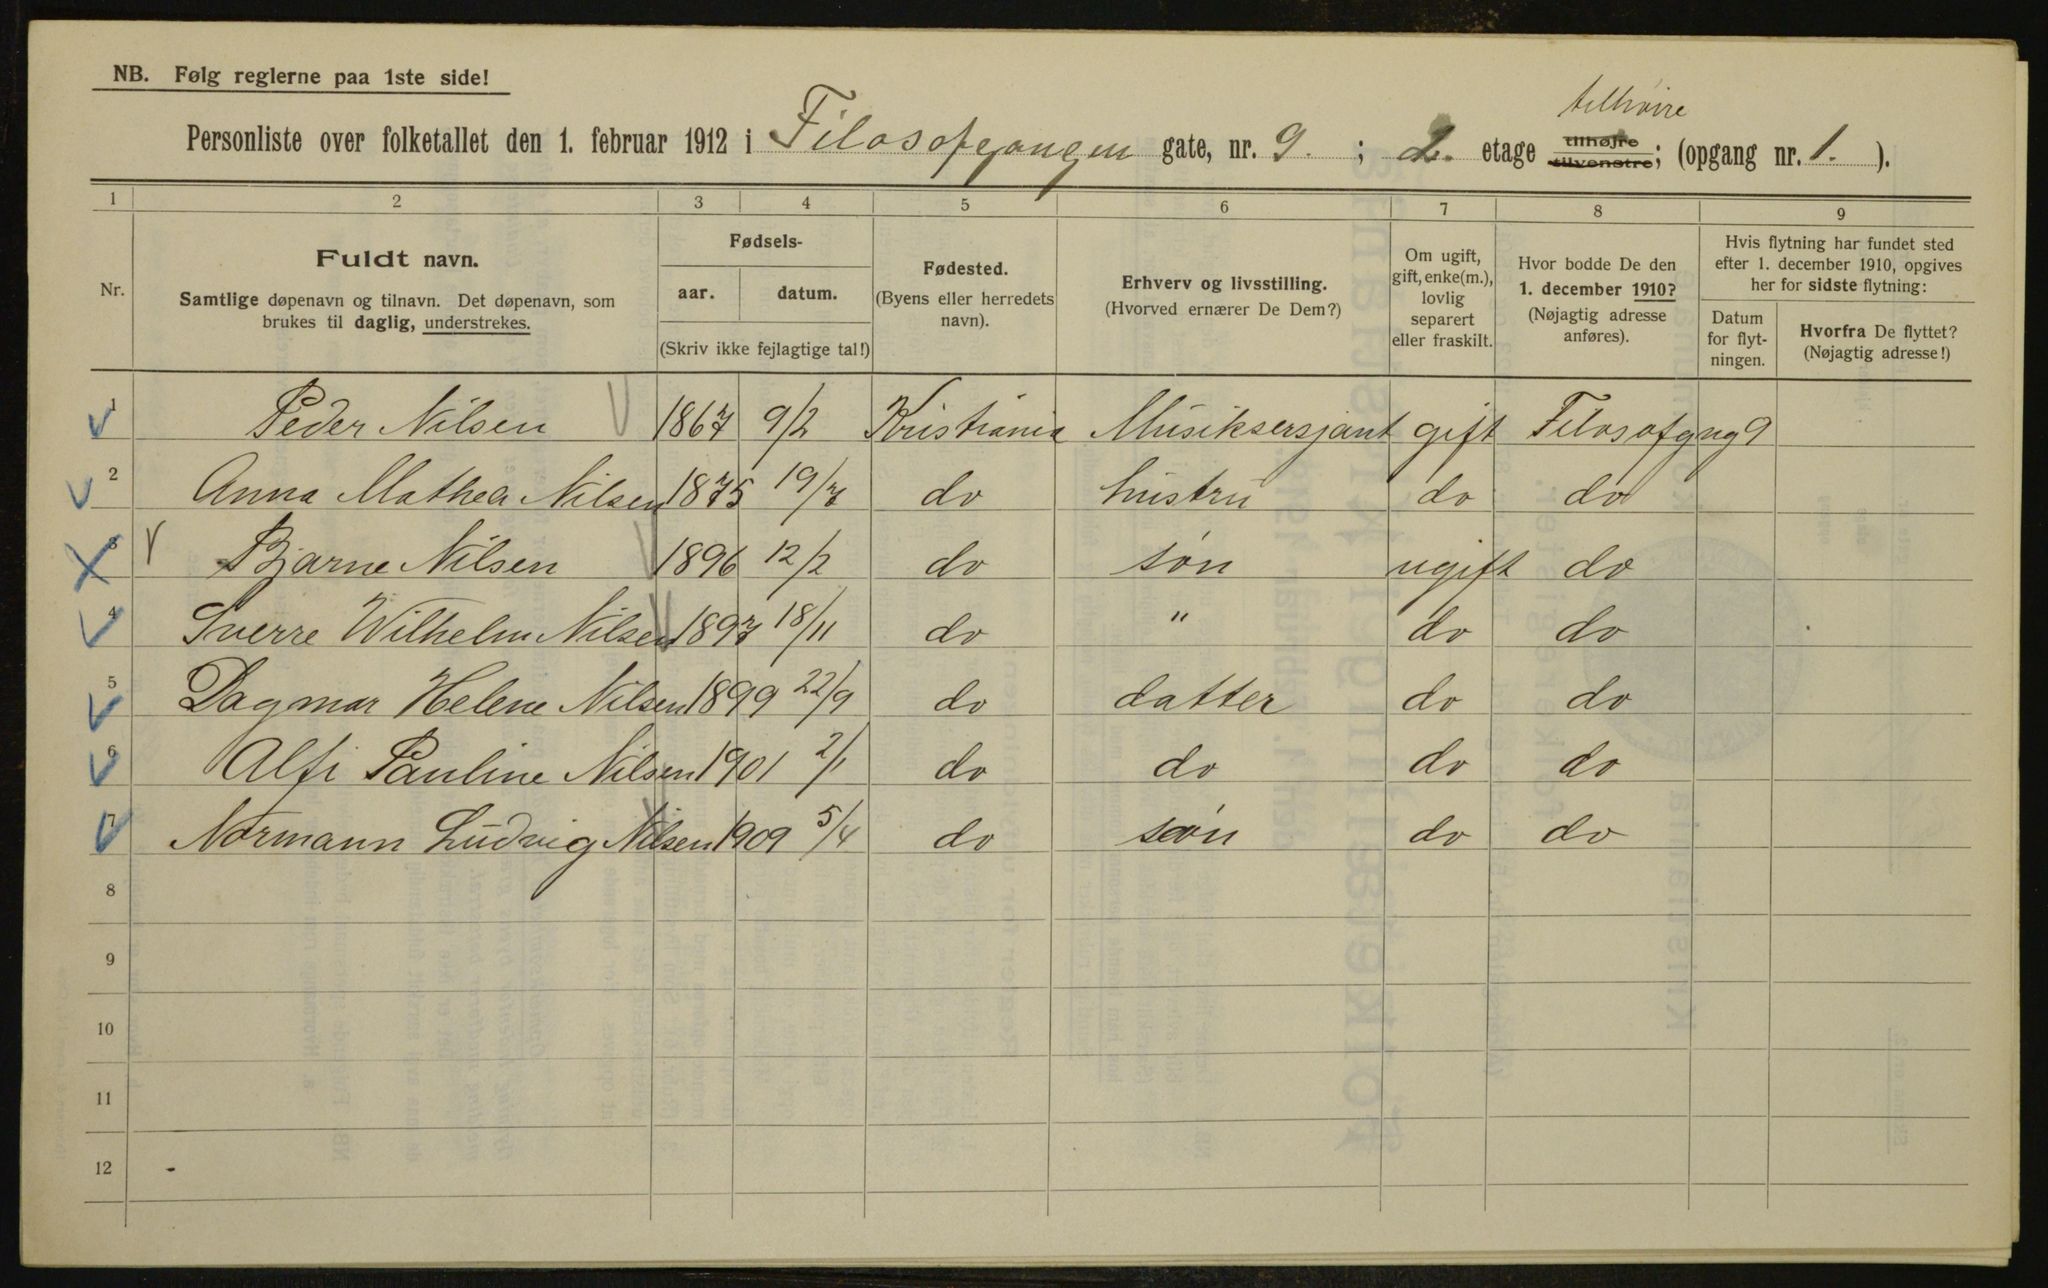 NB. Følg reglerne paa 1ste side!
tilhøire
Personliste over folketallet den 1. februar 1912 i Filosofgangen gate, nr. 9. ; 2. etage tilhøjre tilvenstre; (opgang nr. 1. ).
1 2 3 4 5 6 7 8 9
Nr.
Fuldt navn.
Samtlige døpenavn og tilnavn. Det døpenavn, som
brukes til daglig, understrekes.
Fødsels-
aar. datum.
(Skriv ikke fejlagtige tal!)
Fødested.
(Byens eller herredets
navn).
Erhverv og livsstilling.
(Hvorved ernærer De Dem?)
Om ugift,
gift, enke(m.),
lovlig
separert
eller fraskilt.
Hvor bodde De den
1. december 1910?
(Nøjagtig adresse
anføres).
Hvis flytning har fundet sted
efter 1. december 1910, opgives
her for sidste flytning:
Datum
for flyt-
ningen.
Hvorfra De flyttet?
(Nøjagtig adresse!)
1 Peder Nilsen 1867 9/2 Kristiania Musiksersjant gift Filosofgng 9
2 Anna Mathea Nilsen 1875 19/7 do hustru do do
3 Bjarne Nilsen 1896 12/2 do søn ugift do
4 Sverre Wilhelm Nilsen 1897 18/11 do " do do
5 Dagmar Helene Nilsen 1899 22/9 do datter do do
6 Alfi Pauline Nilsen 1901 2/1 do do do do
7 Normann Ludvig Nilsen 1909 5/4 do søn do do
8
9
10
11
12